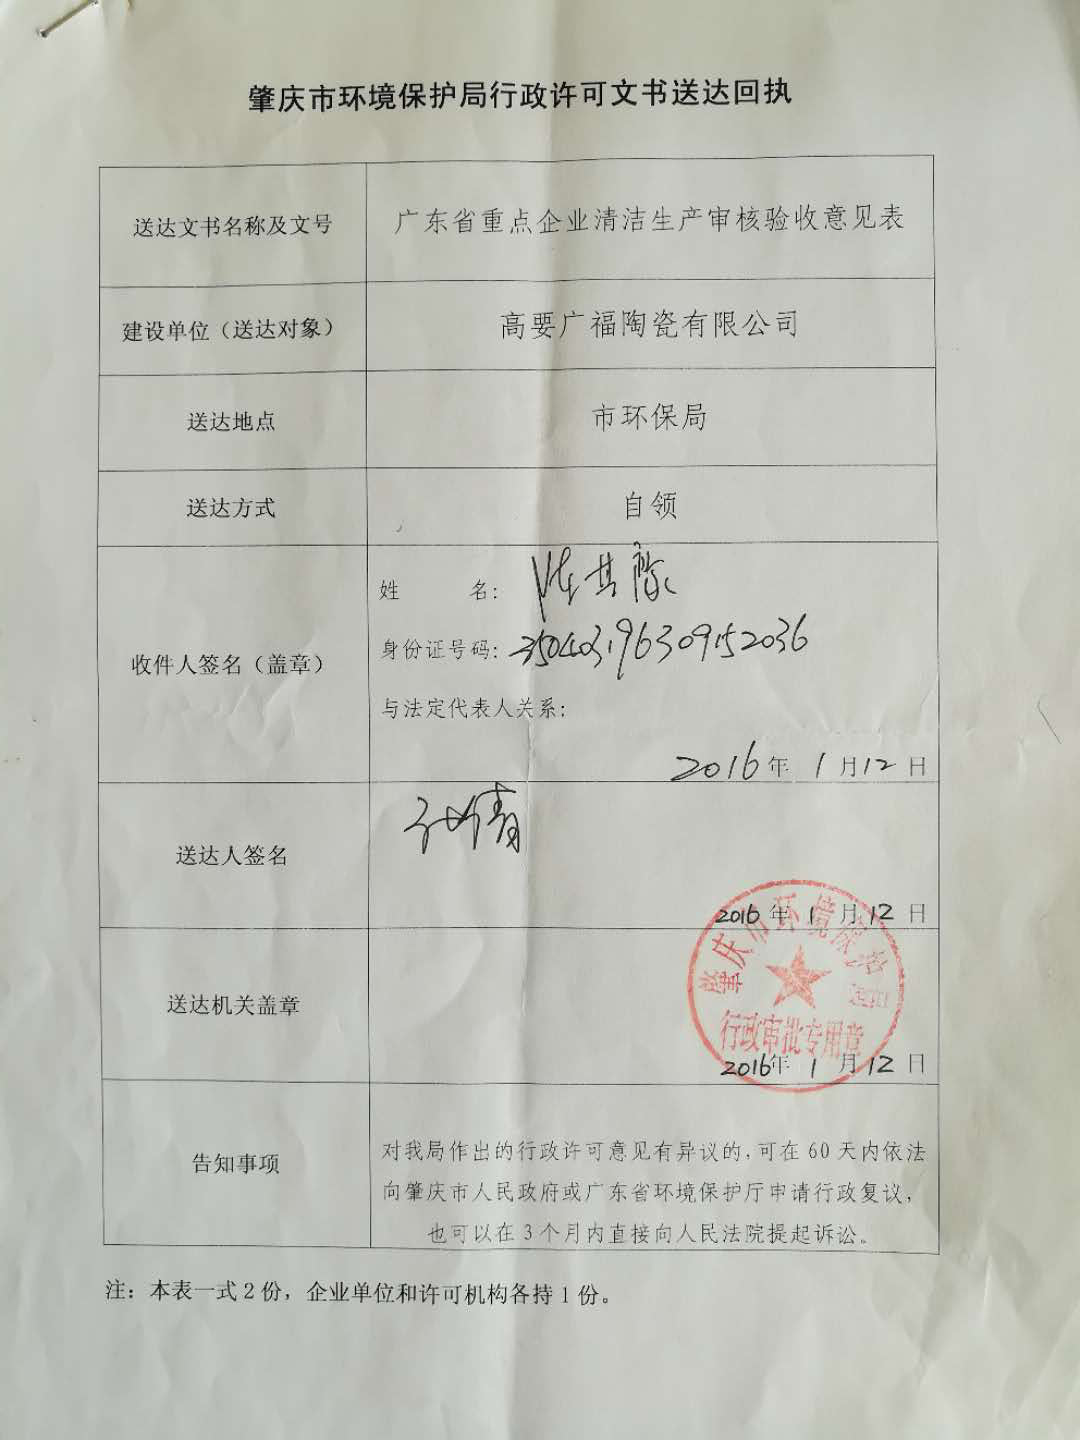 肇庆市环境保护局行政许可文书送达回执
送达文书名称及文号
广东省重点企业清洁生产审核验收意见表
建设单位（送达对象）
高要广福陶瓷有限公司
送达地点
市环保局
送达方式
自领
收件人签名（盖章）
姓 名：
身份证号码：350403196309152036
与法定代表人关系：
2016年 1月12日
送达人签名
2016年 1月12日
送达机关盖章
肇庆市环境保护局
行政审批专用章
2016年 1月12日
告知事项
对我局作出的行政许可意见有异议的，可在 60 天内依法
向肇庆市人民政府或广东省环境保护厅申请行政复议，
也可以在 3 个月内直接向人民法院提起诉讼。
注：本表一式 2 份，企业单位和许可机构各持 1 份。